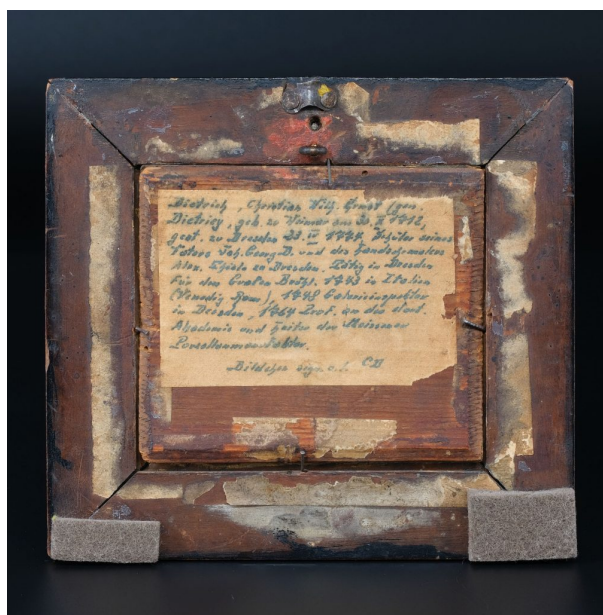 Dietrich, Christian Wilh. Ernst (gen.
Dietricy, geb. zu Weimar am 30. X 1712,
gest. zu Dresden 23. IV 1774, Schüler seines
Vaters Joh. Georg D. und des Landschaftmalers
Alex. Thiele zu Dresden. Tätig in Dresden
für den Grafen Brühl. 1743 in Italien
(Venedig Rom), 1748 Galerieinspektor
in Dresden, 1764 Prof. an der dort.
Akademie und Leiter der Meissener
Porzellanmanufaktur.
Bildchen sign. CD